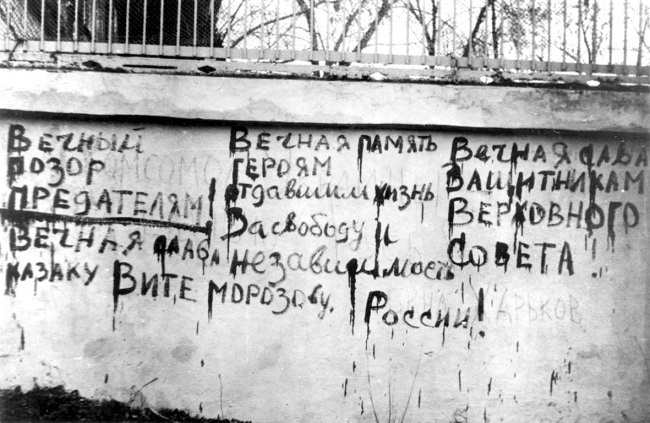 Вечный
позор
предателям!
Вечная слава
казаку Вите Морозову.
Вечная память
героям
отдавшим жизнь
За свободу и
независимость
России!
Вечная слава
Защитникам
Верховного
Совета!
Харьков